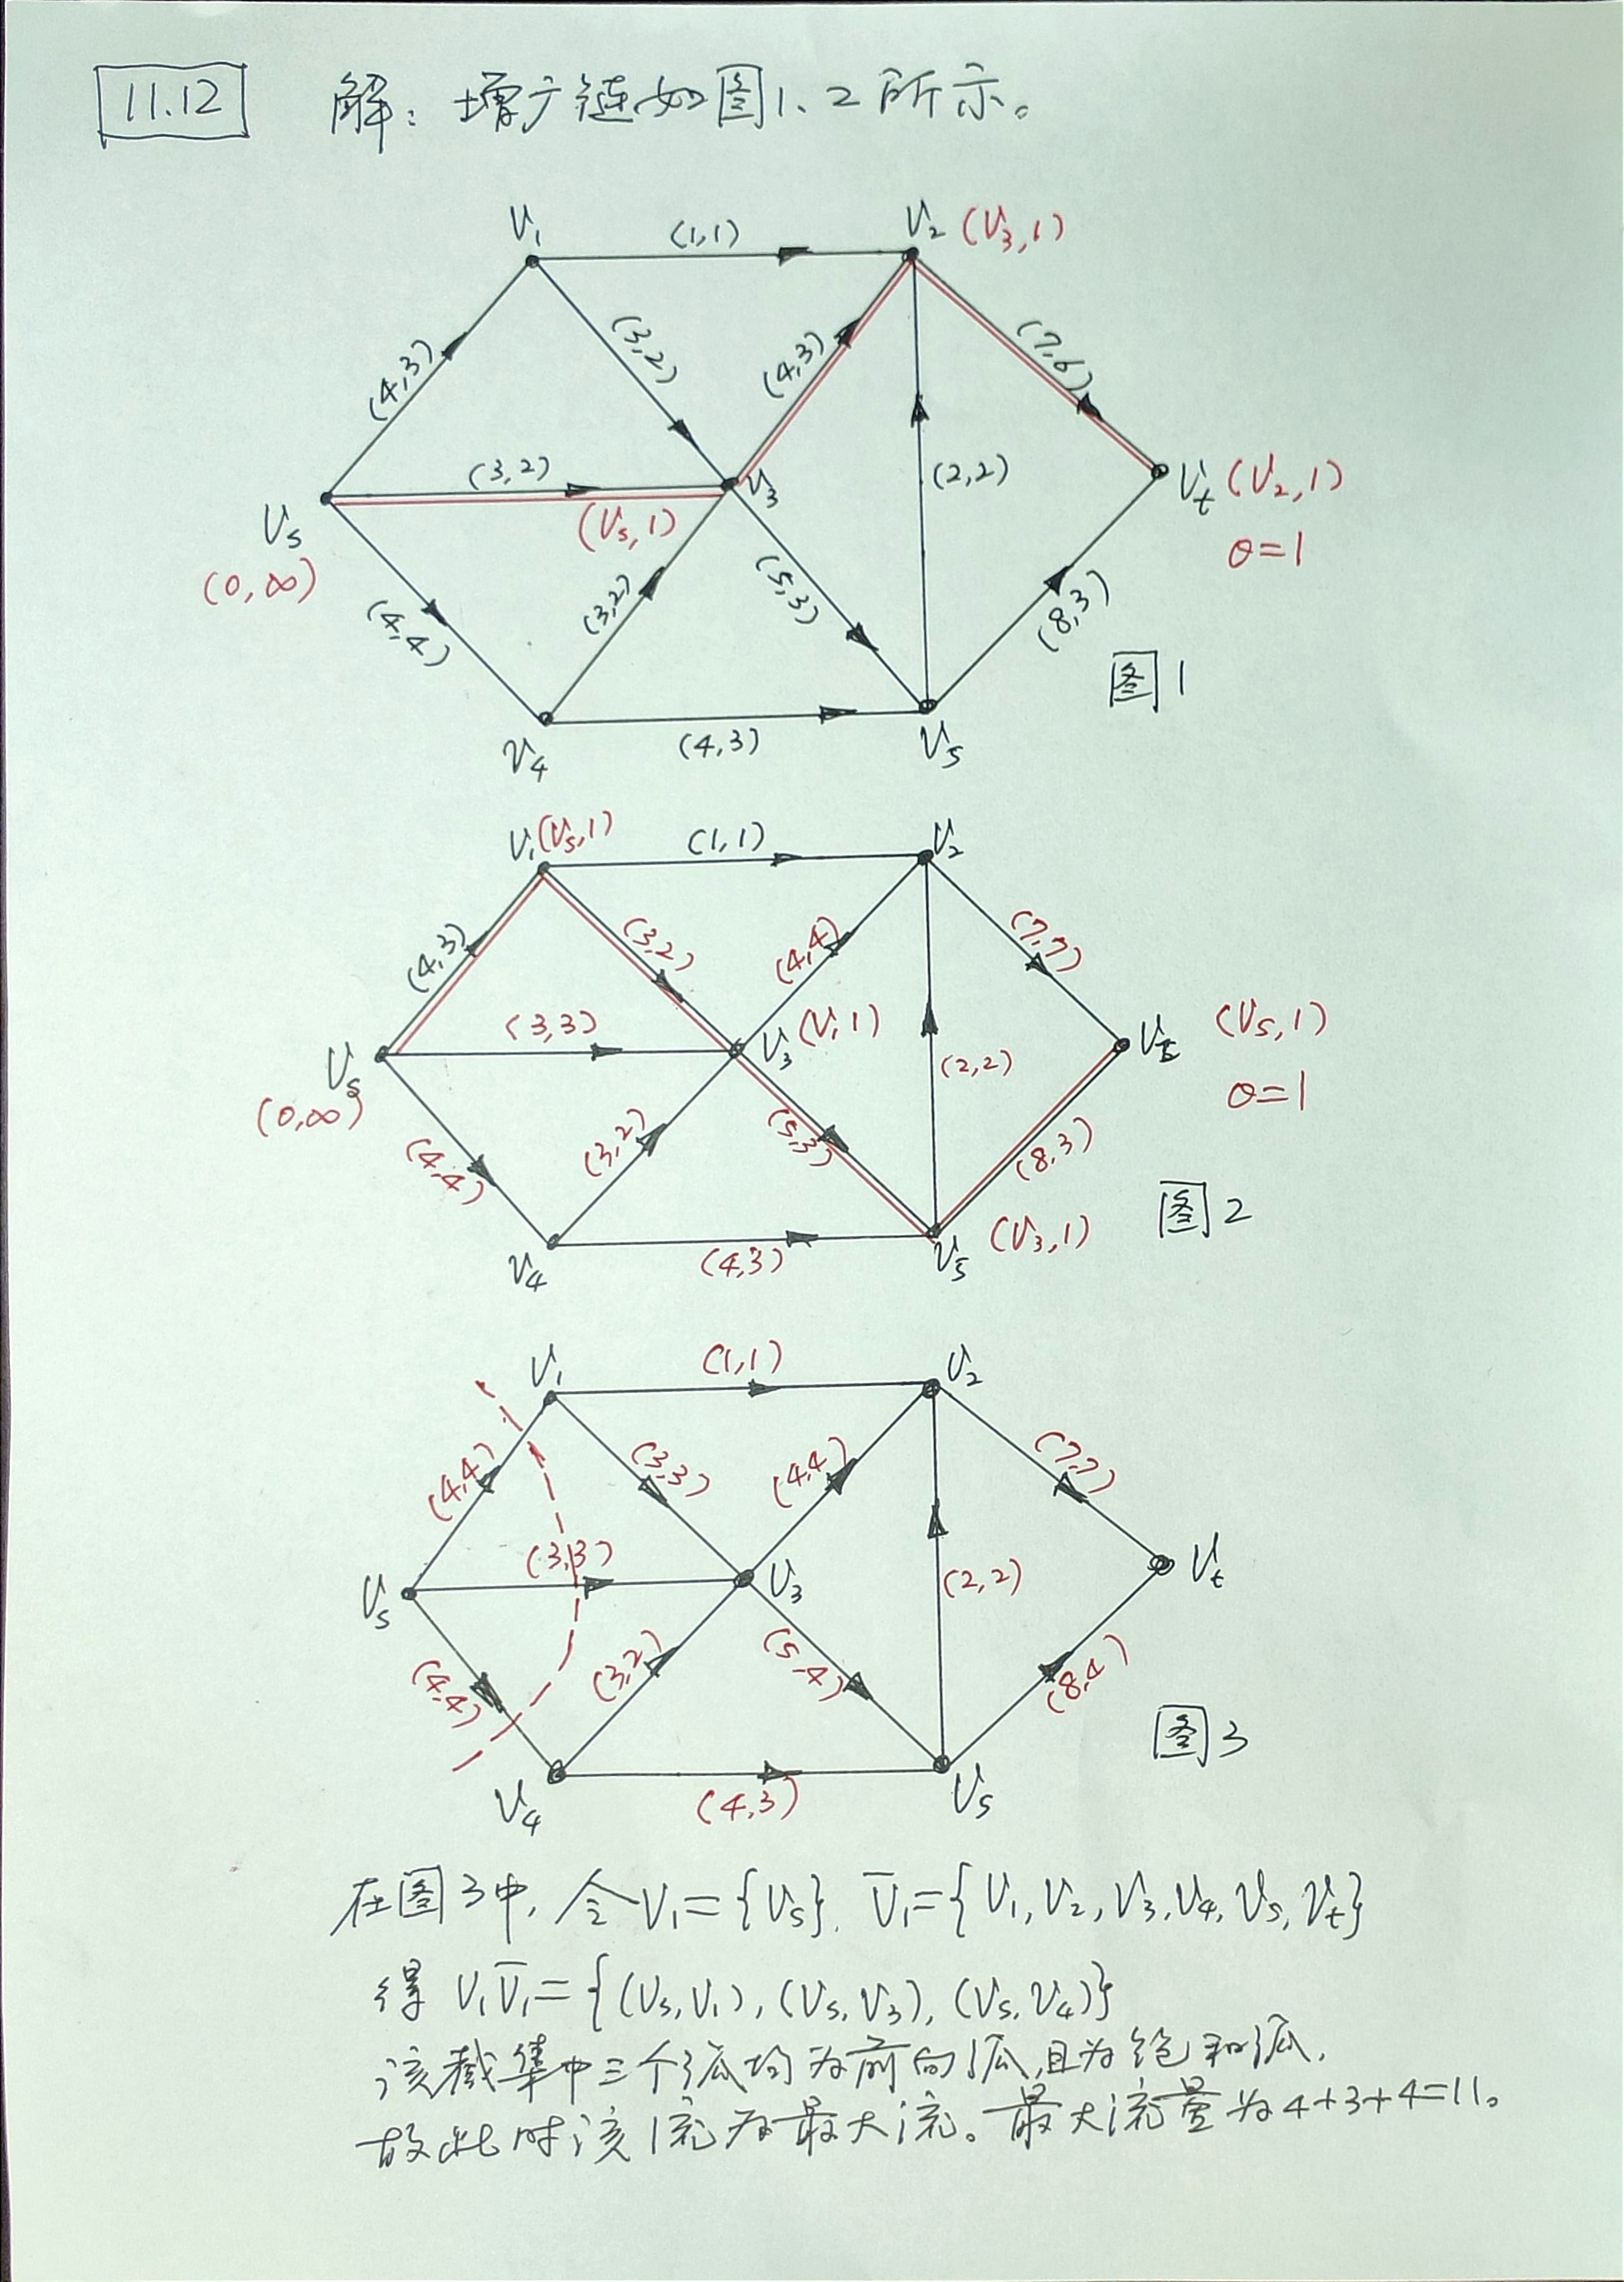 11.12 解:增广链如图1、2所示。
V₁ (1,1) V₂ (V₃,1)
(4,3) (3,2) (4,3) (7,6)
(3,2) V₃ (2,2) Vt (V₂,1)
Vs (Vs,1) θ=1
(0,∞) (4,4) (3,2) (5,3) (8,3)
图1
V₄ (4,3) V₅
V₁(Vs,1) (1,1) V₂
(4,3) (3,2) (4,4) (7,7)
(3,3) V₃ (V₁,1) (2,2) Vt (V₅,1)
Vs θ=1
(0,∞) (4,4) (3,2) (5,3) (8,3)
图2
V₄ (4,3) V₅ (V₃,1)
V₁ (1,1) V₂
(4,4) (3,3) (4,4) (7,7)
Vs (3,3) V₃ (2,2) Vt
(4,4) (3,2) (5,4) (8,4)
图3
V₄ (4,3) V₅
在图3中,令V₁={Vs}, V̄₁={V₁,V₂,V₃,V₄,V₅,Vt}
得 V₁V̄₁={(Vs,V₁),(Vs,V₃),(Vs,V₄)}
该截集中三个弧均为前向弧,且为饱和弧,
故此时该流为最大流。最大流量为4+3+4=11。